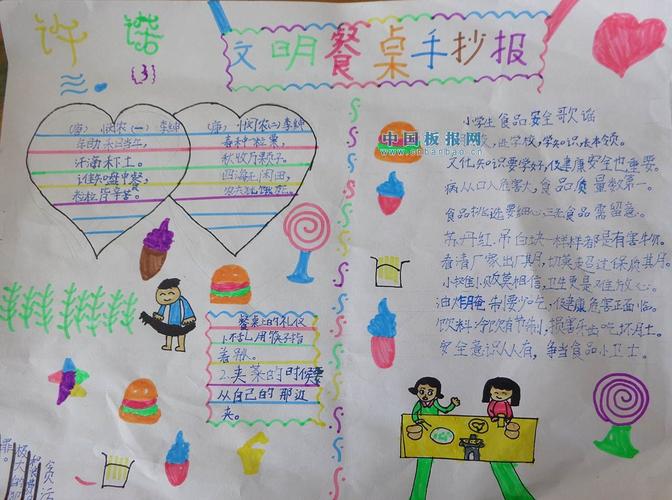 许
(3)
文明餐桌手抄报
中国板报网
(唐) 悯农(一) 李绅
锄禾日当午,
汗滴禾下土。
谁知盘中餐,
粒粒皆辛苦。
(唐) 悯农(二) 李绅
春种一粒粟,
秋收万颗子。
四海无闲田,
农夫犹饿死。
餐桌上的礼仪
1.不乱用筷子指
着别人。
2.夹菜的时候要
从自己的那边
夹。
小学生食品安全歌谣
进学校,学知识,长本领。
文化知识要学好,健康安全也重要。
病从口入危害大,食品质量数第一。
食品挑选要细心,三无食品需留意。
苏丹红,吊白块,一样样都是有害物。
看清厂家出厂期,切莫超过保质期。
小摊小贩莫相信,卫生更是不能放心。
油炸腌制要少吃,健康危害正面临。
饮料冷饮有节制,损害牙齿吃坏肚。
安全意识人人有,争当食品小卫士。